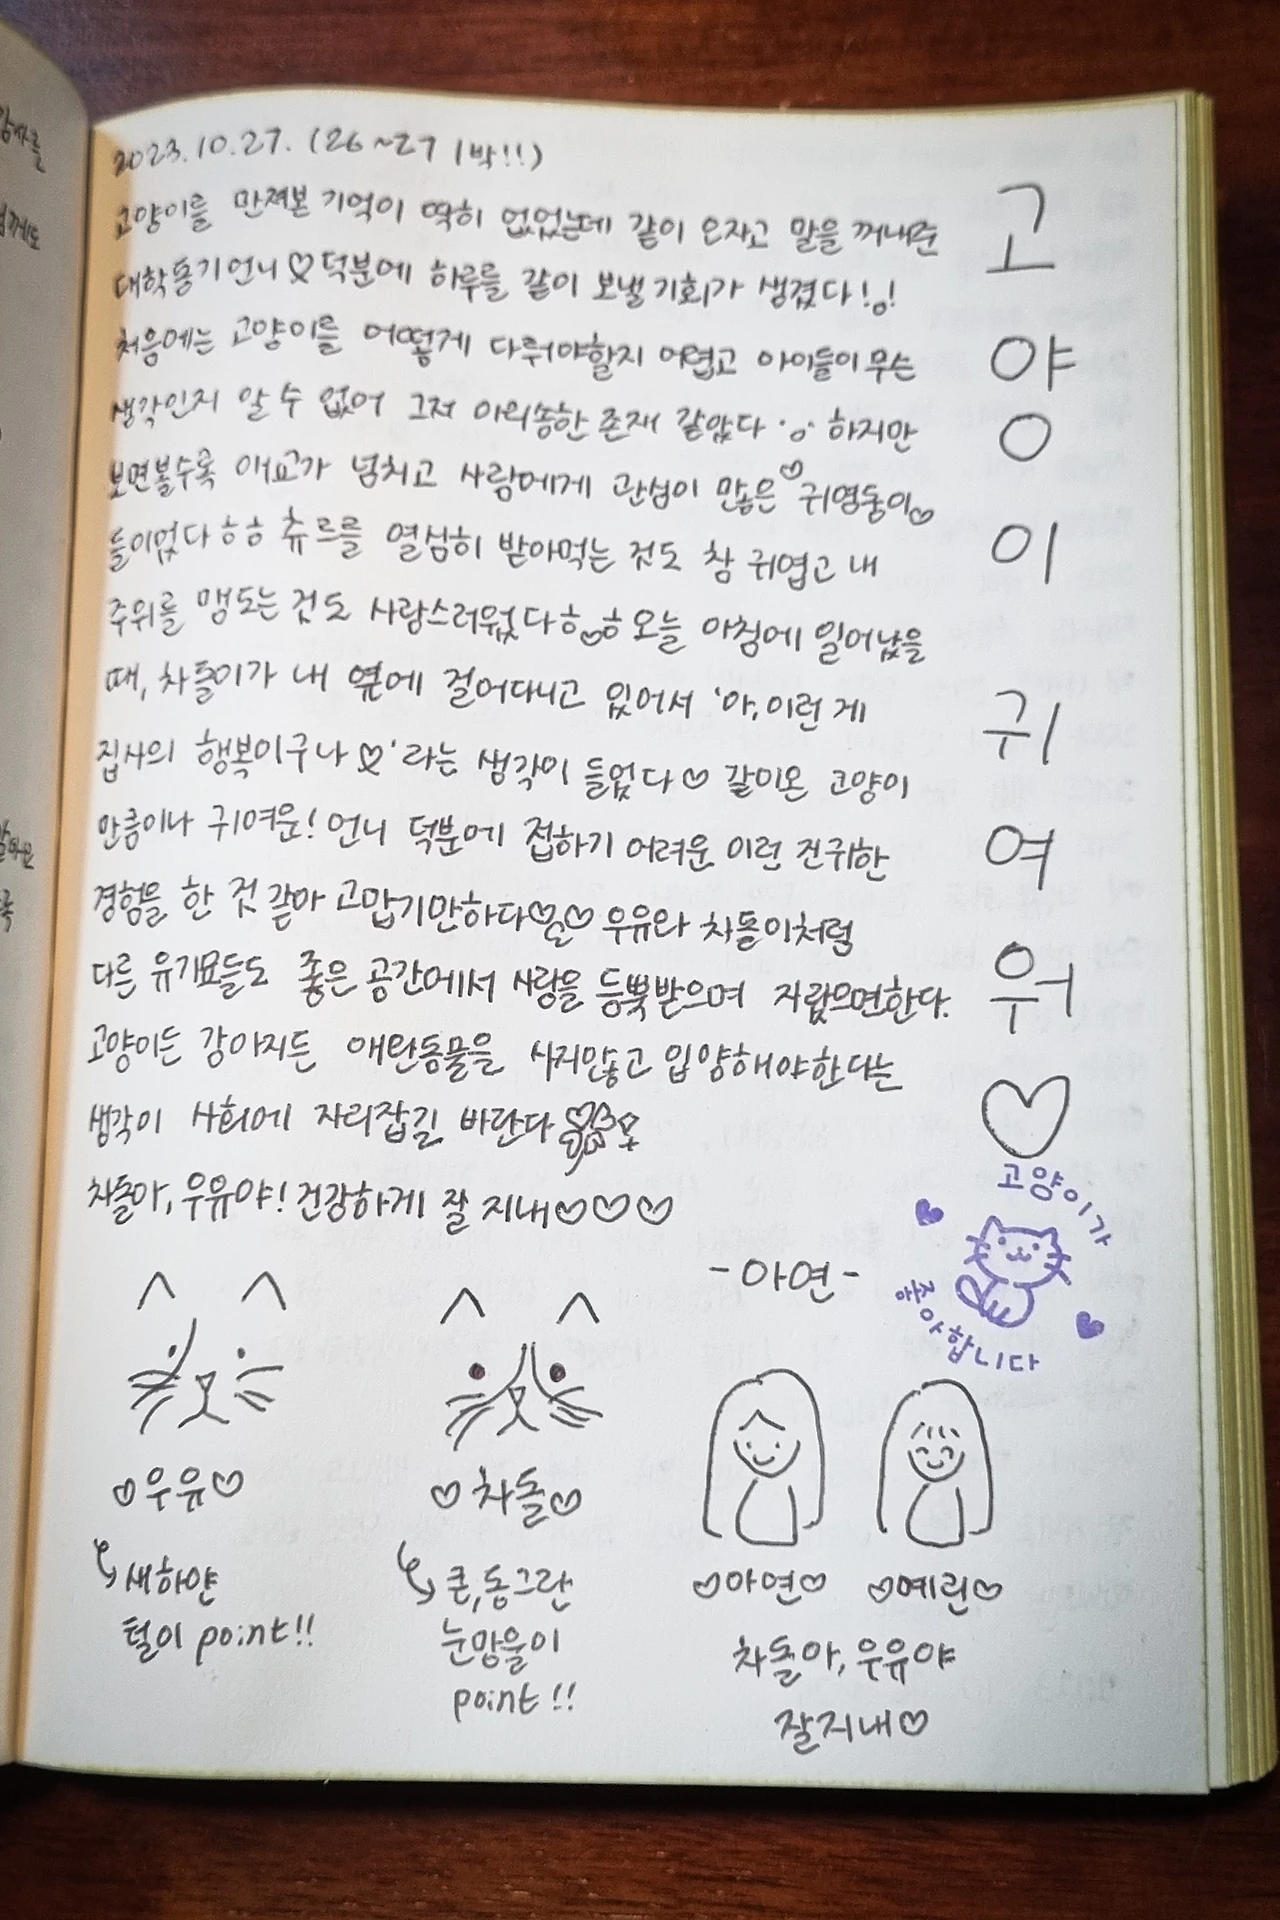 2023.10.27. (26~27 1박!!)
고양이를 만져본 기억이 딱히 없었는데 같이 오자고 말을 꺼내준
대학동기언니♡덕분에 하루를 같이 보낼 기회가 생겼다!!
처음에는 고양이를 어떻게 다뤄야할지 어렵고 아이들이 무슨
생각인지 알 수 없어 그저 아리송한 존재 같았다 하지만
보면볼수록 애교가 넘치고 사람에게 관심이 많은 ♡귀염둥이♡
들이었다ㅎㅎ 츄르를 열심히 받아먹는 것도 참 귀엽고 내
주위를 맴도는 것도 사랑스러웠다ㅎ♡ㅎ 오늘 아침에 일어났을
때, 차돌이가 내 옆에 걸어다니고 있어서 '아, 이런 게
집사의 행복이구나♡'라는 생각이 들었다♡ 같이온 고양이
만큼이나 귀여운! 언니 덕분에 접하기 어려운 이런 진귀한
경험을 한 것 같아 고맙기만하다♡♡ 우유와 차돌이처럼
다른 유기묘들도 좋은 공간에서 사랑을 듬뿍받으며 자랐으면한다.
고양이든 강아지든 애완동물을 사지않고 입양해야한다는
생각이 사회에 자리잡길 바란다
차돌아, 우유야! 건강하게 잘 지내♡♡♡
-아연-
고
양
이
귀
여
워
♡
고양이가
좋아합니다
♡우유♡
새하얀
털이 point!!
♡차돌♡
큰, 동그란
눈망울이
point!!
♡아연♡ ♡예린♡
차돌아, 우유야
잘지내♡